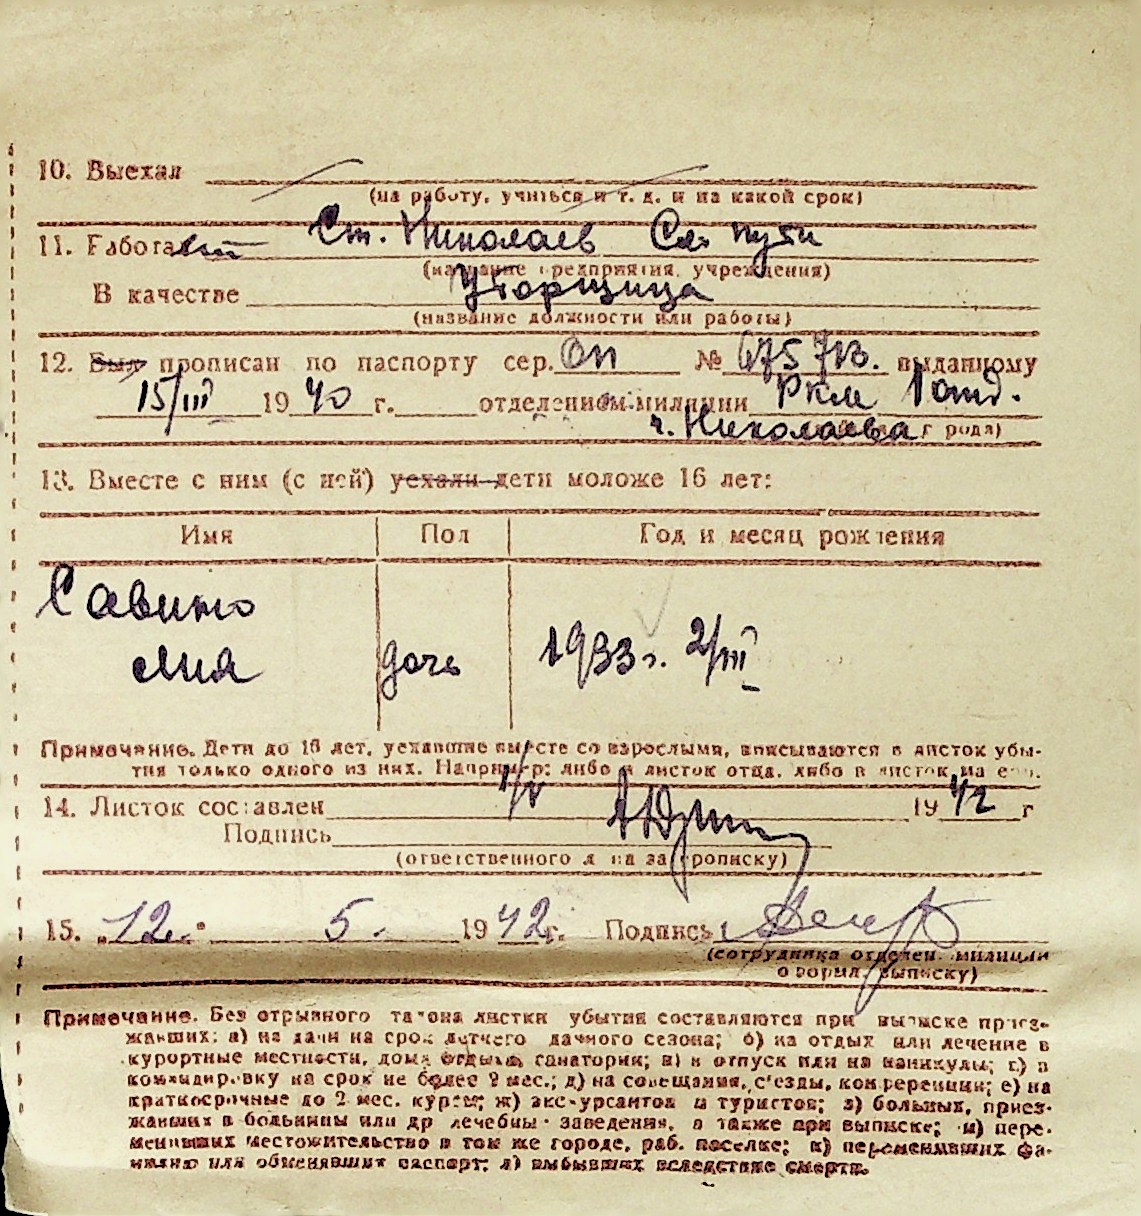 10. Выехал
(на работу, учиться и т. д. и на какой срок)
11. Работает Ст. Николаев Сл. пути
(название предприятия, учреждения)
В качестве Уборщица
(название должности или работы)
12. Был прописан по паспорту сер. ОП № 675713. выданному
15/III 1940 г. отделением милиции Ркм 1 отд.
г. Николаева г рода)
13. Вместе с ним (с ней) уехали дети моложе 16 лет:
Имя Пол Год и месяц рождения
Савино
Лия дочь 1933 г. 2/III
Примечание. Дети до 16 лет, уехавшие вместе со взрослыми, вписываются в листок убы-
тия только одного из них. Например: либо в листок отца, либо в листок матери.
14. Листок составлен 1/V 1942 г
Подпись
(ответственного лица за прописку)
15. „12." 5. 1942 г. Подпись
(сотрудника отделен. милиции
оформл. выписку)
Примечание. Без отрывного талона листки убытия составляются при выписке приез-
жавших: а) на дачи на срок летнего дачного сезона; б) на отдых или лечение в
курортные местности, дома отдыха, санатории; в) в отпуск или на каникулы; г) в
командировку на срок не более 2 мес.; д) на совещания, с'езды, конференции; е) на
краткосрочные до 2 мес. курсы; ж) экскурсантов и туристов; з) больных, приез-
жавших в больницы или др лечебные заведения, а также при выписке; и) пере-
менивших местожительство в том же городе, раб. поселке; к) переменивших фа-
милию или обменявших паспорт; л) выбывших вследствие смерти.